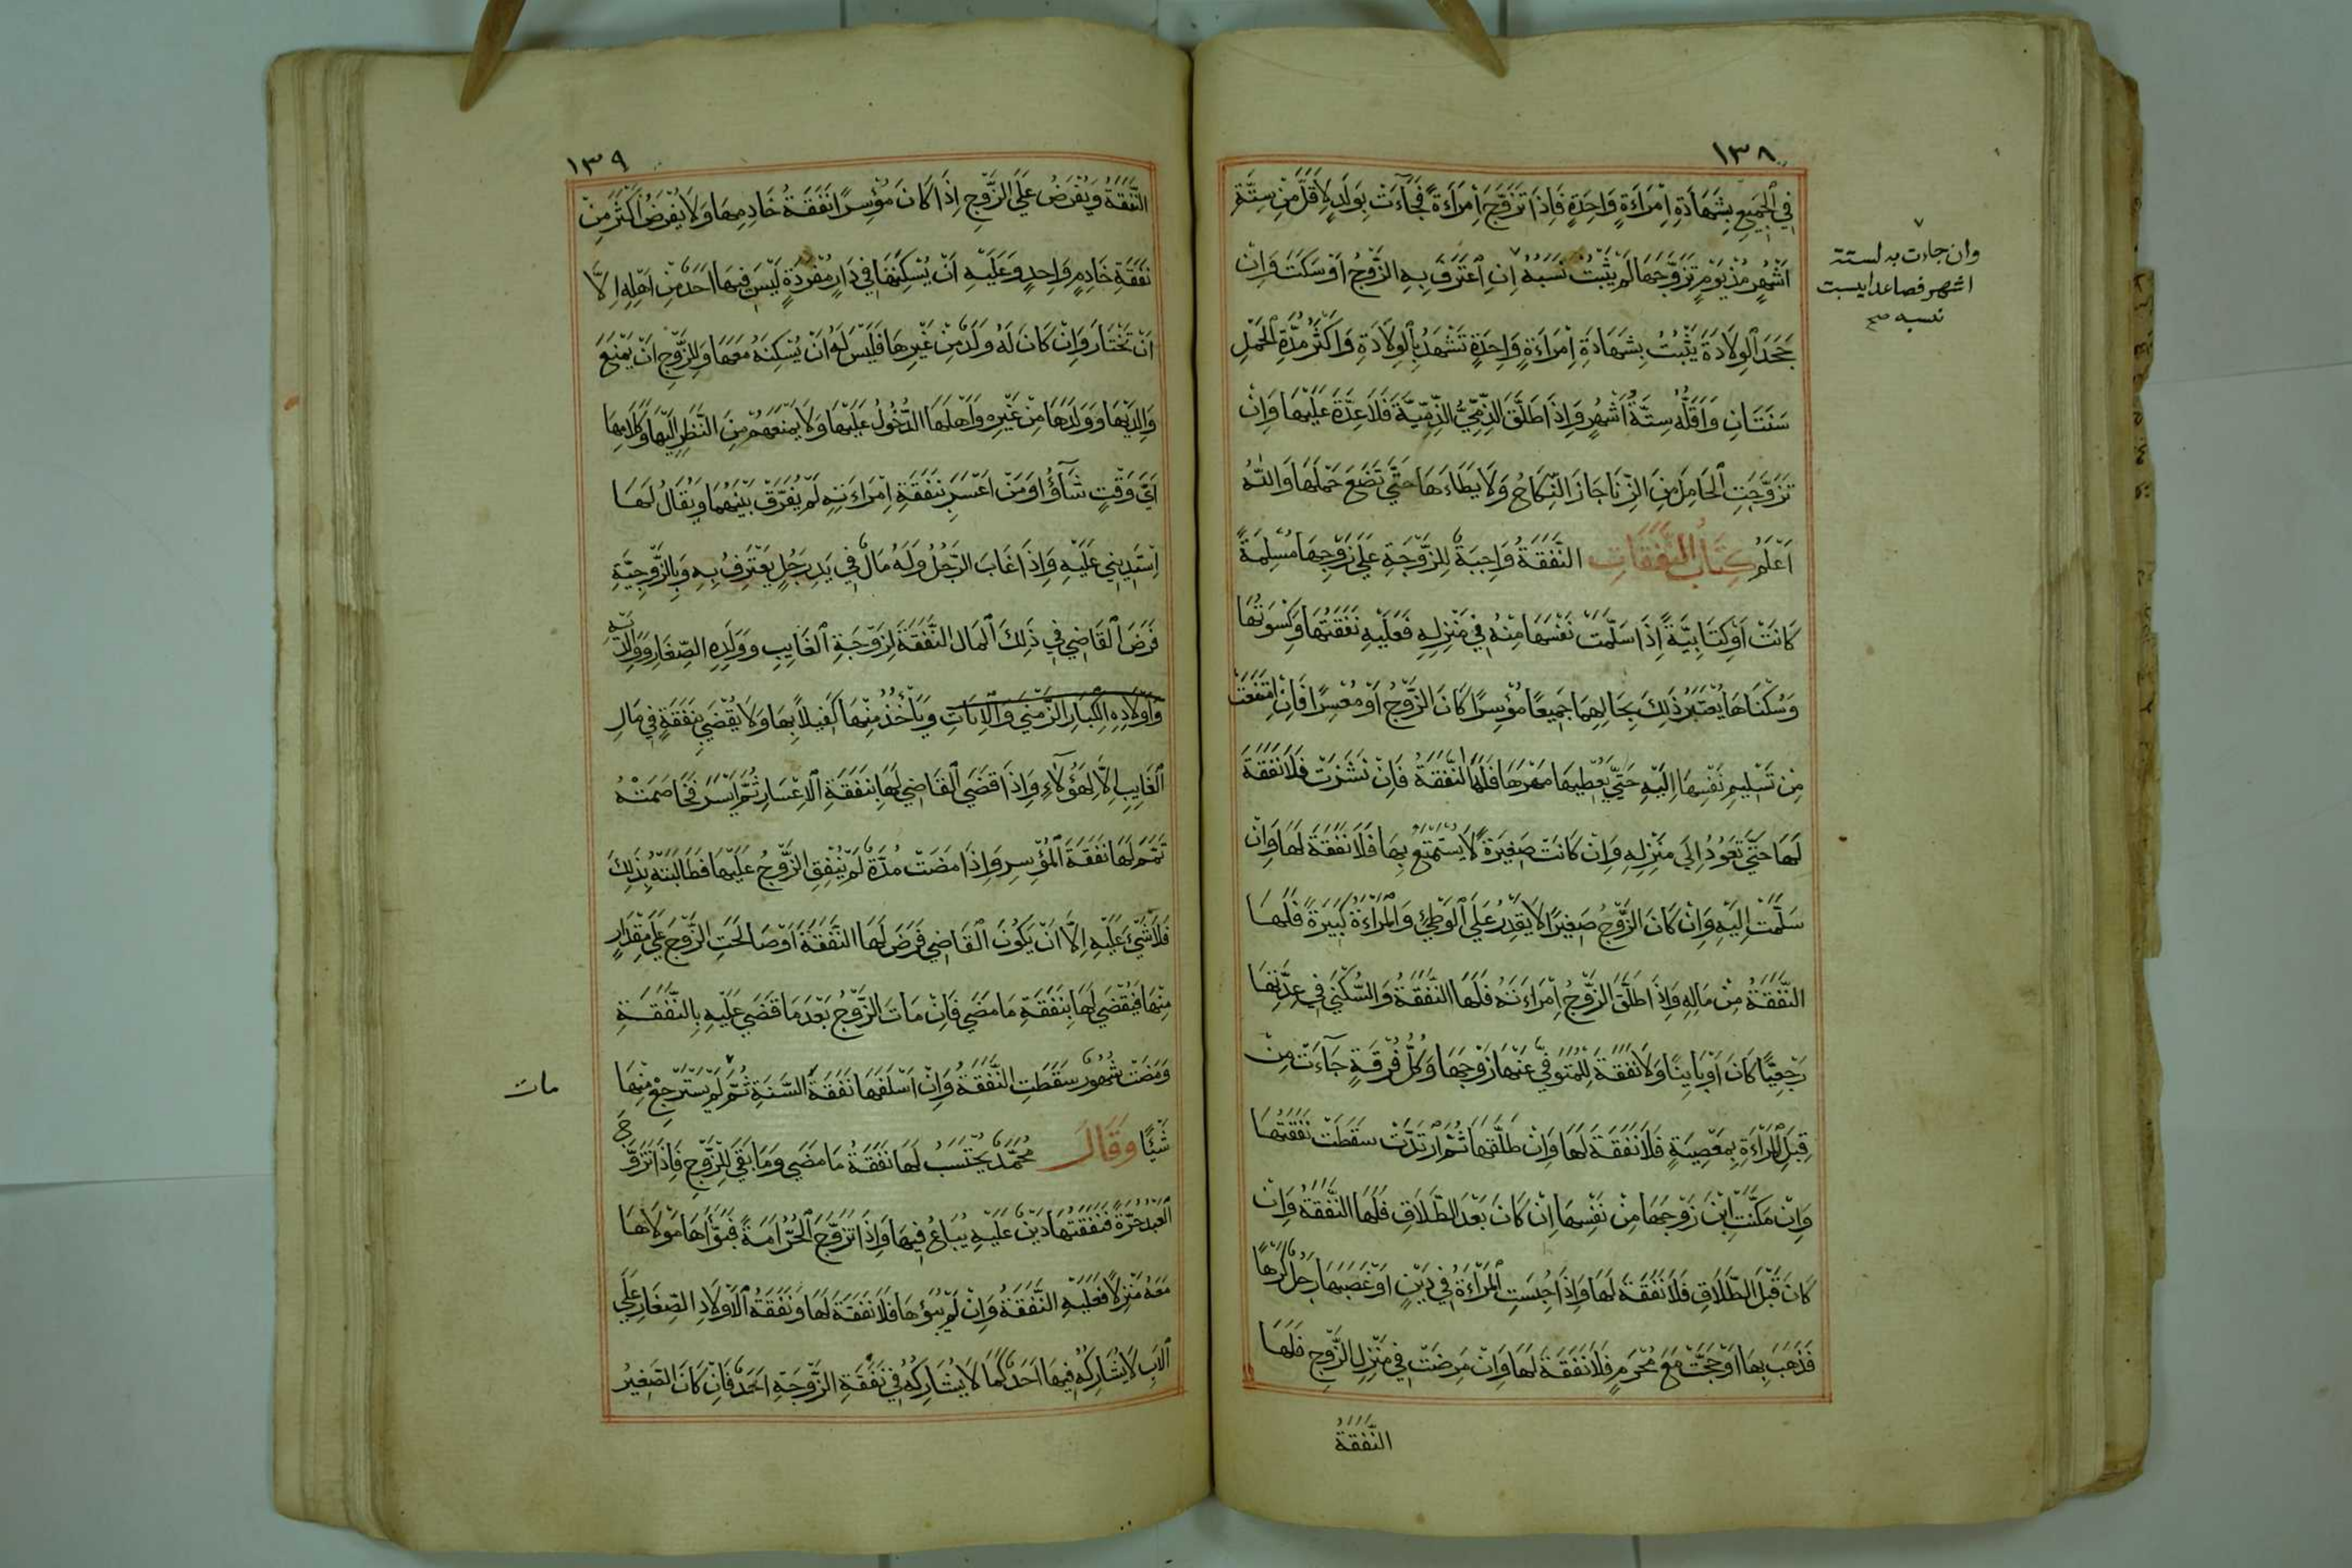 ١٣٨
في الجميع بشهادة امراءة واحدة فاذا تزوج امراءة فجآءت بولد لاقل من ستة
اشهر مذ يوم تزوجها لم يثبت نسبه ان اعترف به الزوج او سكت وان
جحد الولادة يثبت بشهادة امراءة واحدة تشهد بالولادة واكثر مدة الحمل
سنتان واقله ستة اشهر واذا طلق الذمي الذمية فلا عدة عليها وان
تزوجت الحامل من الزنا جاز النكاح ولا يطاءها حتى تضع حملها والله
اعلم كتاب النفقات النفقة واجبة للزوجة على زوجها مسلمة
كانت او كتابية اذا سلمت نفسها منه في منزله فعليه نفقتها وكسوتها
وسكناها يعتبر ذلك بحالهما جميعا مؤسرا كان الزوج او معسرا فان امتنعت
من تسليم نفسها اليه حتى يعطيها مهرها فلها النفقة فان نشزت فلا نفقة
لها حتى تعود الى منزله وان كانت صغيرة لا يستمتع بها فلا نفقة لها وان
سلمت اليه وان كان الزوج صغيرا لا يقدر على الوطئ والمراءة كبيرة فلها
النفقة من ماله واذا طلق الزوج امراءته فلها النفقة والسكنى في عدتها
رجعيا كان او باينا ولا نفقة للمتوفى عنها زوجها وكل فرقة جآءت من
قبل المراءة بمعصية فلا نفقة لها وان طلقها ثم ارتدت سقطت نفقتها
وان مكنت ابن زوجها من نفسها ان كان بعد الطلاق فلها النفقة وان
كان قبل الطلاق فلا نفقة لها واذا حبست المراءة في دين او غصبها رجل كرها
فذهب بها او حجت مع محرم فلا نفقة لها وان مرضت في منزل الزوج فلها
النفقة
وان جاءت به لستة
اشهر فصاعدا يثبت
نسبه صح
١٣٩
النفقة ويفرض على الزوج اذا كان مؤسرا نفقة خادمها ولا يفرض اكثر من
نفقة خادم واحد وعليه ان يسكنها في دار مفردة ليس فيها احد من اهله الا
ان تختار وان كان له ولد من غيرها فليس له ان يسكنه معها وللزوج ان يمنع
والديها وولدها من غيره واهلها الدخول عليها ولا يمنعهم من النظر اليها وكلامها
اي وقت شآؤا ومن اعسر بنفقة امراءته لم يفرق بينهما ويقال لها
استديني عليه واذا غاب الرجل وله مال في يد رجل يعترف به وبالزوجية
فرض القاضي في ذلك المال النفقة لزوجة الغايب وولده الصغار ووالديه
واولاده الكبار الزمنى والاناث وياخذ منها كفيلا بها ولا يقضي بنفقة في مال
الغايب الا لهؤلاء واذا قضى القاضي لها بنفقة الاعسار ثم ايسر فخاصمته
تمم لها نفقة المؤسر واذا مضت مدة لم ينفق الزوج عليها فطالبته بذلك
فلا شئ عليه الا ان يكون القاضي فرض لها النفقة او صالحت الزوج على مقدار
منها فيقضى لها بنفقة ما مضى فان مات الزوج بعد ما قضى عليه بالنفقة
ومضت شهور سقطت النفقة وان اسلفها نفقة السنة ثم لم يسترجع منها
شيئا وقال محمد يحتسب لها نفقة ما مضى وما بقي للزوج فاذا تزوج
العبد حرة فنفقتها دين عليه يباع فيها واذا تزوج الحر امة فبوأها مولاها
معه منزلا فعليه النفقة وان لم يبؤها فلا نفقة لها ونفقة الاولاد الصغار على
الاب لا يشاركه فيها احد كما لا يشاركه في نفقة الزوجة احد فان كان الصغير
مات